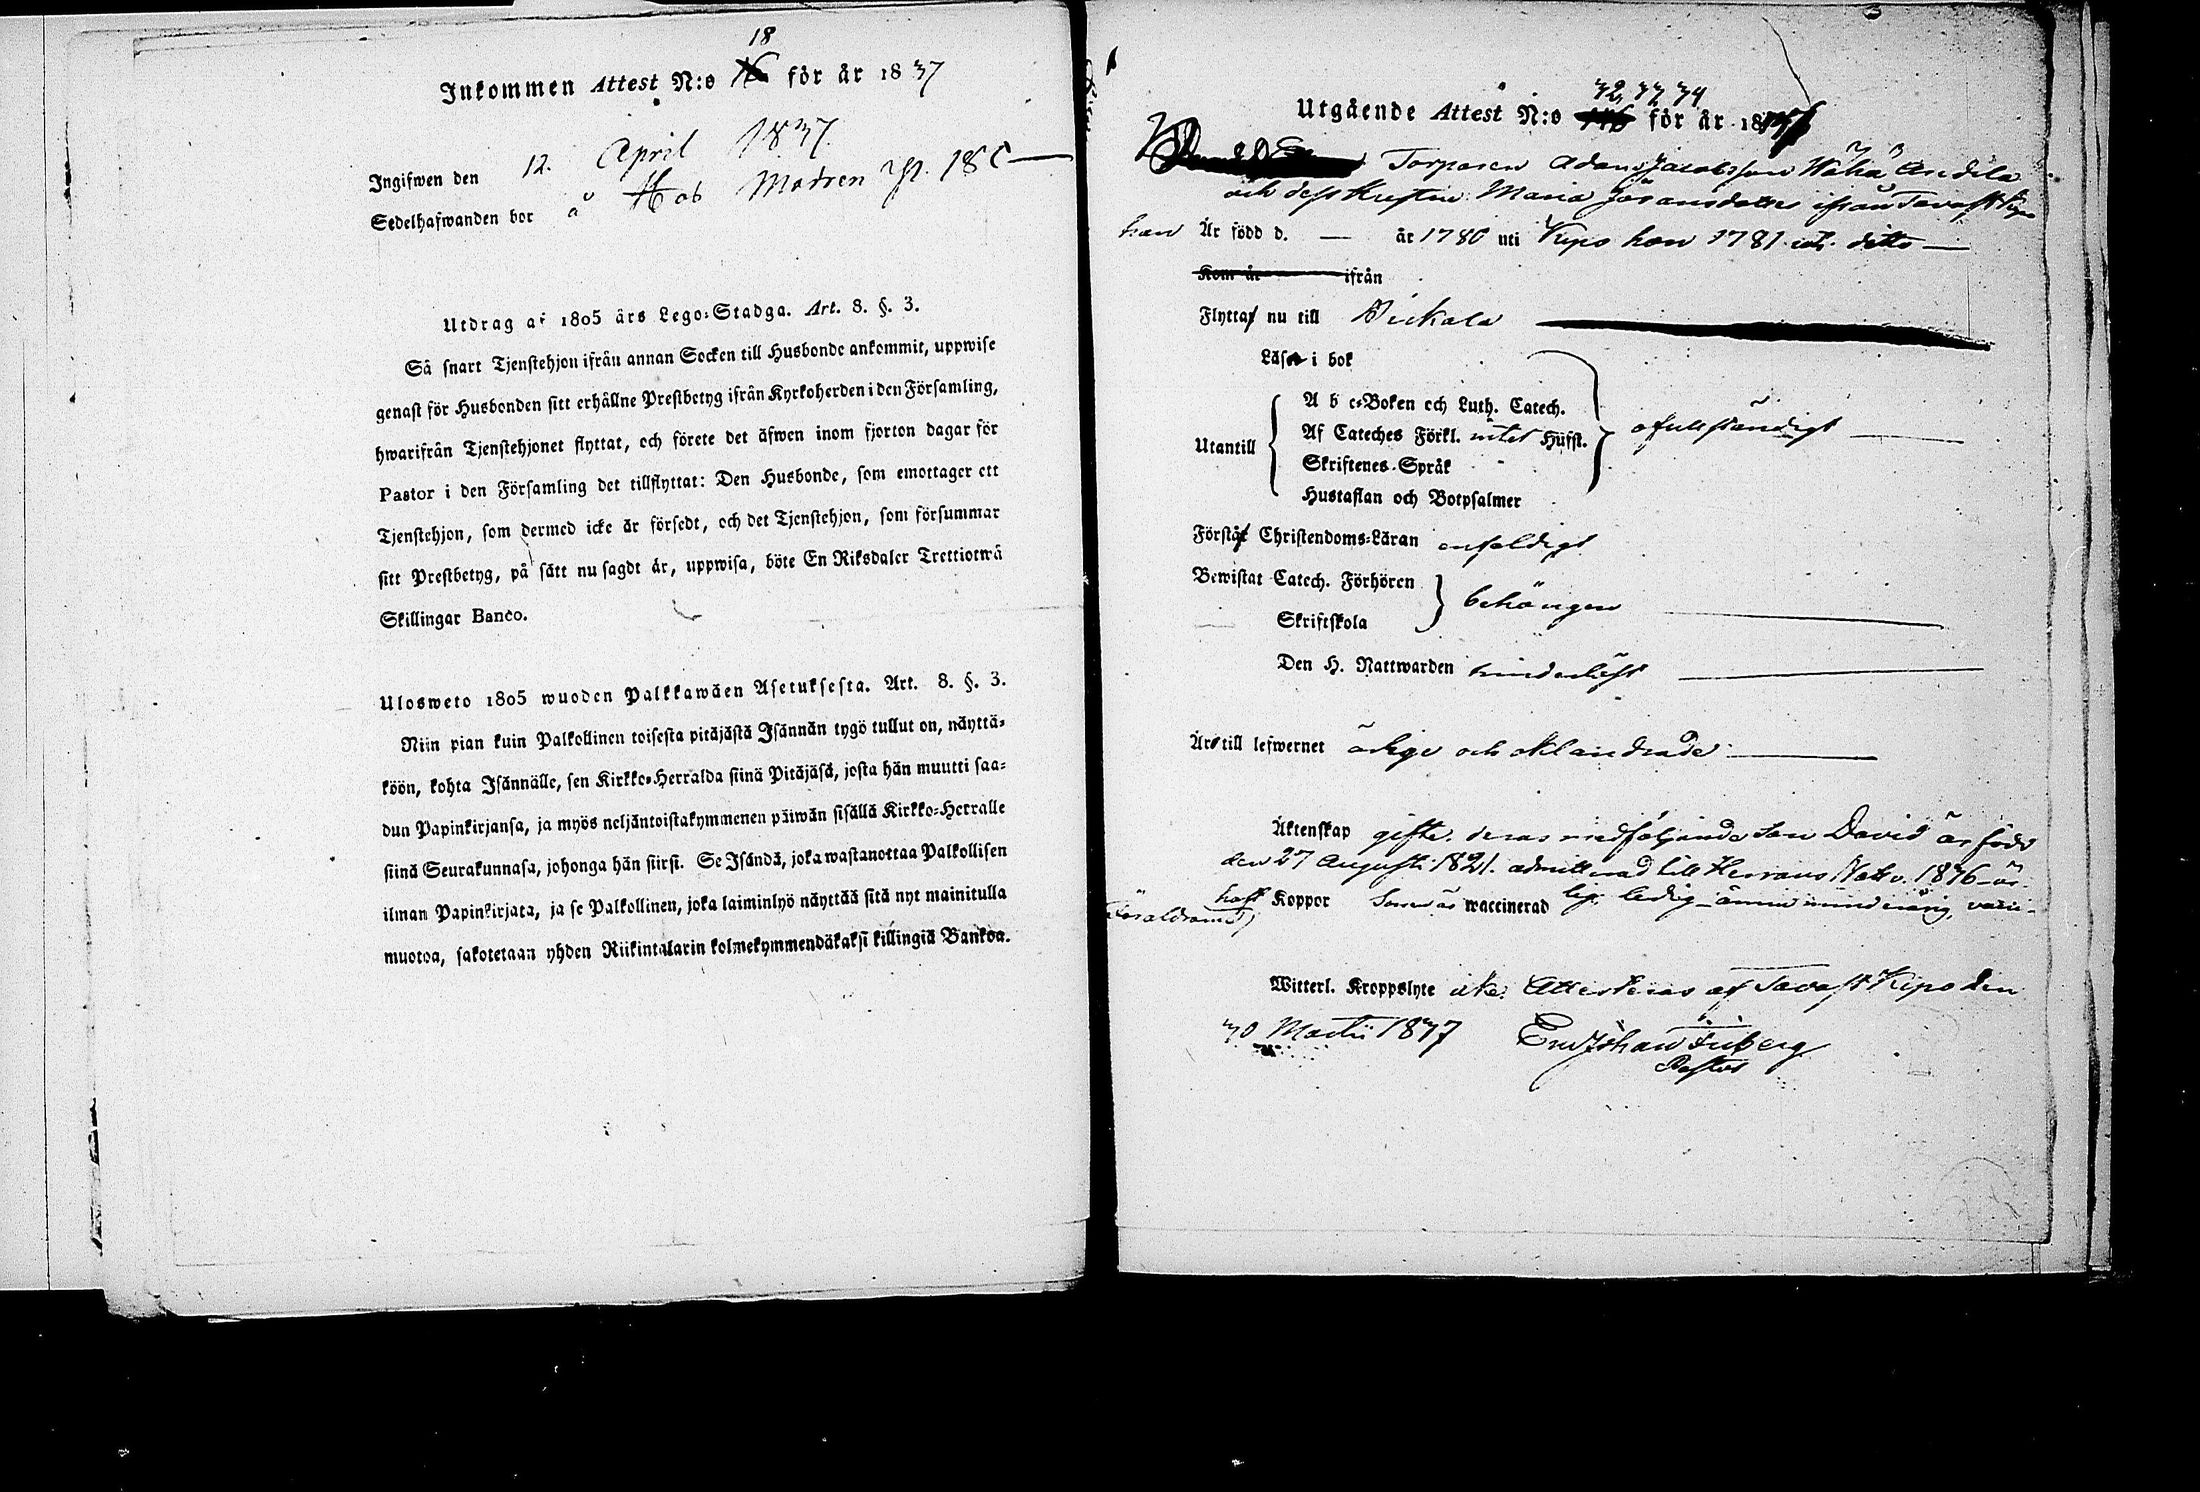 18
Inkommen Attest N:o 16 för år 1837
Ingifwen den 12. April 1837.
Sedelhafwanden bor å Hob Madren
Utdrag af 1805 års Lego-Stadga. Art. 8. §. 3.
Så snart Tjenstehjon ifrån annan Socken till Husbonde ankommit, uppwise
genast för Husbonden sitt erhållne Prestbetyg ifrån Kyrkoherden i den Församling,
hwarifrån Tjenstehjonet flyttat, och förete det äfwen inom fjorton dagar för
Pastor i den Församling det tillflyttat: Den Husbonde, som emottager ett
Tjenstehjon, som dermed icke är försedt, och det Tjenstehjon, som försummar
sitt Prestbetyg, på sätt nu sagdt är, uppwisa, böte En Riksdaler Trettiotwå
Skillingar Banco.
Ulosweto 1805 wuoden Palkkawäen Asetuksesta. Art. 8. §. 3.
Niin pian kuin Palkollinen toisesta pitäjästä Isännän tygö tullut on, näyttä-
köön, kohta Isännälle, sen Kirkko-Herralda siinä Pitäjäsä, josta hän muutti saa-
dun Papinkirjansa, ja myös neljäntoistakymmenen päiwän sisällä Kirkko-Herralle
siinä Seurakunnasa, johonga hän siirsi. Se Isändä, joka wastanottaa Palkollisen
ilman Papinkirjata, ja se Palkollinen, joka laiminlyö näyttää sitä nyt mainitulla
muotoa, sakotetaan yhden Riikintalarin kolmekymmendäkaksi killingiä Bankoa.
32, 33, 34
Utgående Attest N:o för år 18
Torparen Adam Jacobsson Wähä Andila
och dess hustru Maria Göransdotter ifrån Tavast Kyro
han Är född d. — år 1780 uti Kyro hon 1781 ditto —
Kom år ifrån
Flyttat nu till Birkala
Läser i bok
A b c-Boken och Luth. Catech.
Utantill Af Cateches Förkl. intet Hüfst. ofullständigt
Skriftenes-Språk
Hustaflan och Botpsalmer
Förstår Christendoms-Läran enfaldigt
Bewistat Catech. Förhören behörigen
Skriftskola
Den H. Nattwarden
Är till lefwernet ärlige och oklandrade
Äktenskap gifte. deras medföljande Son David är född
den 27 Augusti 1821. admitterad till Herrans Nattv. 1836 är
haft Koppor Sonen är waccinerad ledig ännu
Witterl. Kroppslyte icke. Attesteras af Tavast Kyro den
30 Martii 1837 Johan Friberg
Pastor